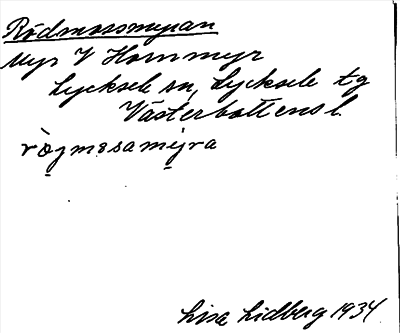 Rödmossmyran
Myr V Hornmyr
Lycksele sn, Lycksele tg
Västerbottens l.
rö̀jmosamýra
Lisa Lidberg 1934